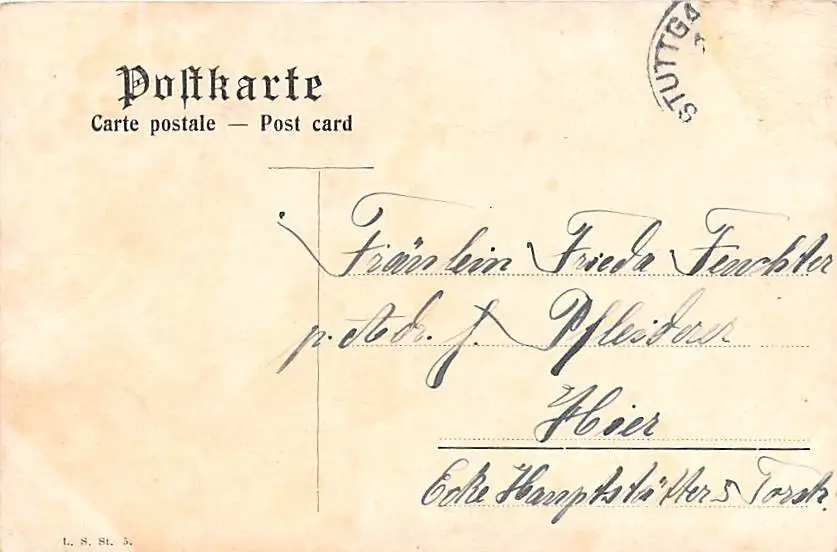 STUTTGA
Postkarte
Carte postale — Post card
Fräulein Frieda Fenchter
p. Adr. J. Pfleiderer
Hier
Ecke Hauptstätter & Torstr.
L. S. St. 5.